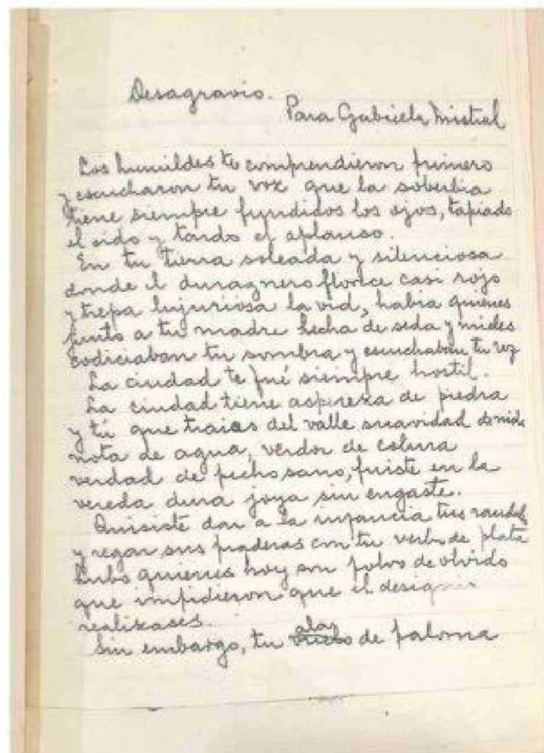 Desagravio.
Para Gabriela Mistral
Los humildes te comprendieron primero
y escucharon tu voz que la soberbia
tiene siempre fundidos los ojos, tapiado
el oido y tardo el aplauso.
En tu tierra soleada y silenciosa
donde el duraznero florece casi rojo
y trepa lujuriosa la vid, habia quienes
junto a tu madre hecha de seda y mieles
codiciaban tu sombra y escuchaban tu voz
La ciudad te fué siempre hostil.
La ciudad tiene aspereza de piedra
y tú que traias del valle suavidad de nido
nota de agua, verdor de colina
verdad de pecho sano, fuiste en la
vereda dura joya sin engaste.
Quisiste dar a la infancia tus
y regar sus praderas con tu verbo de plata
hubo quienes hoy son polvo de olvido
que impidieron que el designio
realizases.
Sin embargo, tu alas de paloma